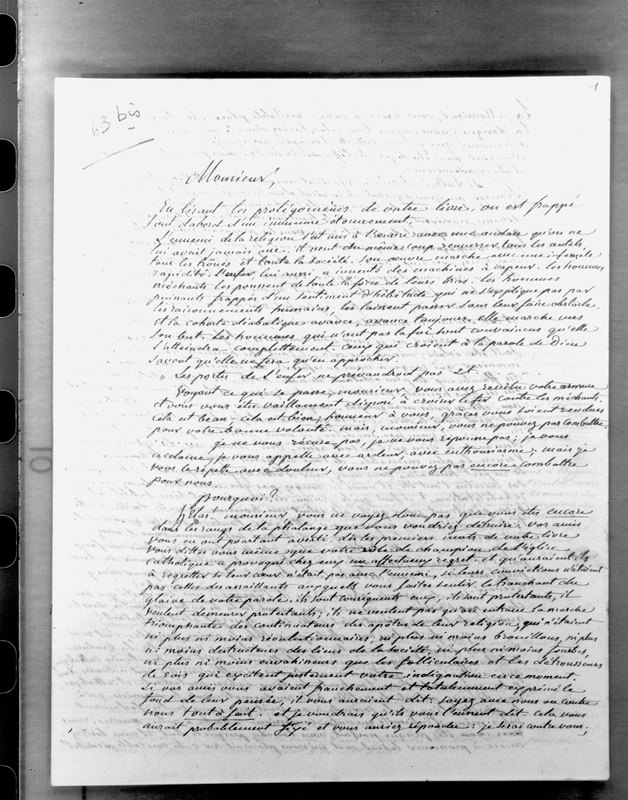 1
63 bis
Monsieur,
En lisant les prolégomènes de votre livre, on est frappé
tout d'abord d'un immense étonnement.
L'ennemi de la religion s'est mis à l'œuvre avec une audace qu'on ne
lui avait jamais vue. Il veut du même coup renverser tous les autels,
tous les trônes et toute la société. Son œuvre marche avec une infernale
rapidité. L'enfer, lui aussi, a inventé des machines à vapeur. Les hommes
méchants les poussent de toute la force de leurs bras. Les hommes
puissants frappés d'un sentiment d'hébétude qui ne s'explique pas par
les raisonnements humains, les laissent passer sans leur faire obstacle.
Et la cohorte diabolique avance, avance toujours. Elle marche vers
son but. Les hommes qui n'ont pas la foi sont convaincus qu'elle
l'atteindra complettement. Ceux qui croient à la parole de Dieu
savent qu'elle ne fera qu'en approcher.
" Les portes de l'enfer ne prévaudront pas. Et
Voyant ce qui se passe, monsieur, vous avez revêtu votre armure
et vous vous êtes vaillamment disposé à croiser le fer contre les méchants.
Cela est beau, cela est bien; honneur à vous, grâces vous soient rendues
pour votre bonne volonté. Mais, monsieur, vous ne pouvez pas combattre.
Je ne vous récuse pas, je ne vous repousse pas; je vous
acclame, je vous appelle avec ardeur, avec enthousiasme. Mais je
vous le répète avec douleur, vous ne pouvez pas encore combattre
pour nous.
Pourquoi?
Hélas! monsieur, vous ne voyez donc pas que vous êtes encore
dans les rangs de la phalange que vous voudriez détruire. Vos amis
vous en ont pourtant averti. Dès les premiers mots de votre livre
vous dittes vous même que votre rôle de champion de l'église
catholique a provoqué chez eux un affectueux regret. Et qu'auraient ils
à regretter si leur cœur n'était pas avec l'ennemi, si leurs convictions n'étaient
pas celles des assaillants auxquels vous faites sentir le tranchant du
glaive de votre parole. Ils sont conséquents eux, ils sont protestants, ils
veulent demeurer protestants; ils ne veulent pas qu'on entrave la marche
triomphante des continuateurs des apôtres de leur religion, qui n'étaient
ni plus ni moins révolutionnaires, ni plus ni moins brouillons, ni plus
ni moins destructeurs des liens de la société, ni plus ni moins fourbes,
ni plus ni moins envahisseurs que les folliculaires et les détrousseurs
de rois qui excitent justement votre indignation en ce moment.
Si vos amis vous avaient franchement et totalement exprimé le
fond de leur pensée, ils vous auraient dit: soyez avec nous ou contre
nous tout à fait. Et je voudrais qu'ils vous l'eussent dit. Cela vous
aurait probablement fixé et vous auriez répondu: je serai contre vous,